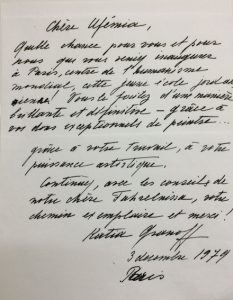 Chère Ufémia,
Quelle chance pour vous et pour
nous que vous venez inaugurer
à Paris, centre de l'humanisme
mondial, cette jeune école jordanienne! Vous le faites d'une manière
brillante et définitive - grâce à
vos dons exceptionnels de peintre...
grâce à votre travail, à votre
puissance artistique.
Continuez, avec les conseils de
notre chère Fahrelnissa, votre
chemin exemplaire et merci!
Katia Granoff
3 décembre 1979
Paris